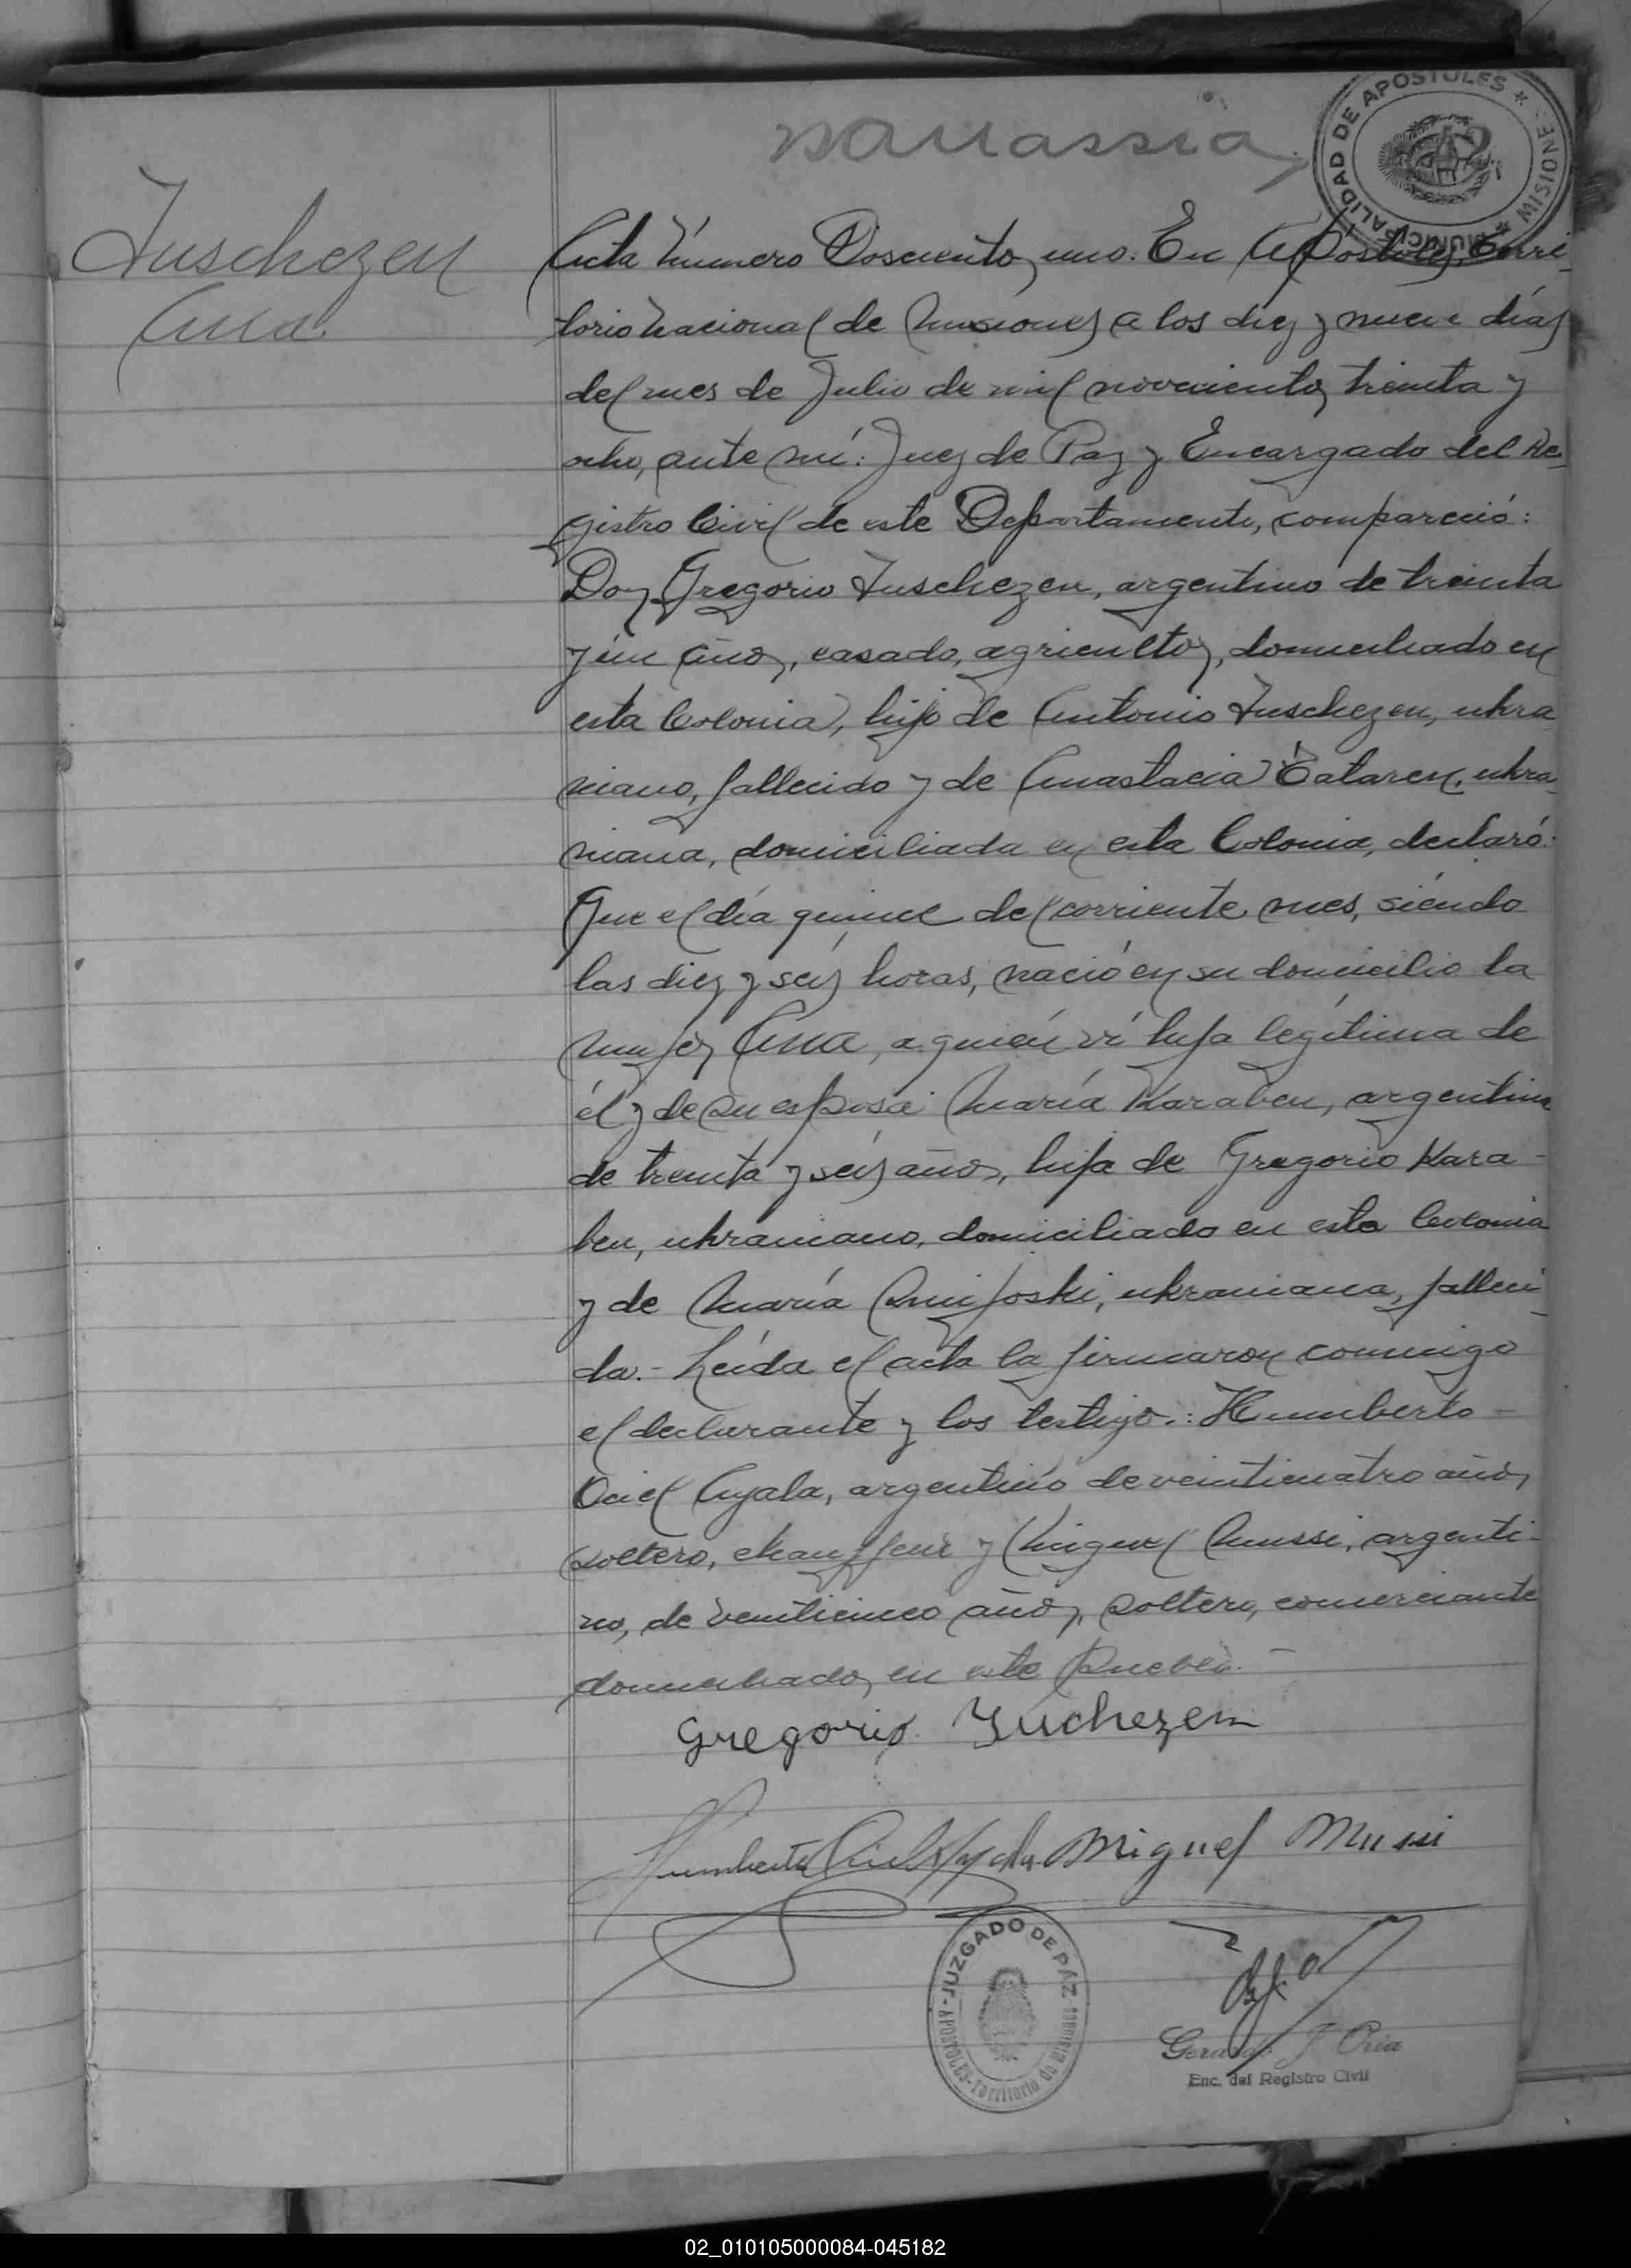 MUNICIPALIDAD DE APOSTOLES * MISIONES *
42
Juschezen
Ana
Acta Número Doscientos uno. En Apóstoles, Terri-
torio Nacional de Misiones a los diez y nueve días
del mes de Julio de mil novecientos treinta y
ocho, ante mí: Juez de Paz y Encargado del Re-
gistro Civil de este Departamento, compareció:
Don Gregorio Juschezen, argentino de treinta
y ún años, casado, agricultor, domiciliado en
esta Colonia, hijo de Antonio Juschezen, ukra
niano, fallecido y de Anastacia Cataren, ukra-
niana, domiciliada en esta Colonia, declaró:
Que el día quince del corriente mes, siéndo
las diez y seis horas, nació en su domicilio la
mujer Ana, a quién ví hija legítima de
él y de su esposa María Karaben, argentina
de treinta y seis años, hija de Gregorio Kara-
ben, ukraniano, domiciliado en esta Colonia
y de María, ukraniana, falleci-
da.- Leída el acta la firmaron conmigo
el declarante y los testigos: Humberto -
Ociel Ayala, argentino de veinticuatro años,
soltero, chauffeur y Miguel Mussi, argenti-
no, de veinticinco años, soltero, comerciante
domiciliados en este Pueblo. -
Gregorio Yuchezen
Humberto Ociel Ayala Miguel Mussi
JUZGADO DE PAZ
APOSTOLES - Territorio de Misiones
J. Oria
Enc. del Registro Civil
02_010105000084-045182